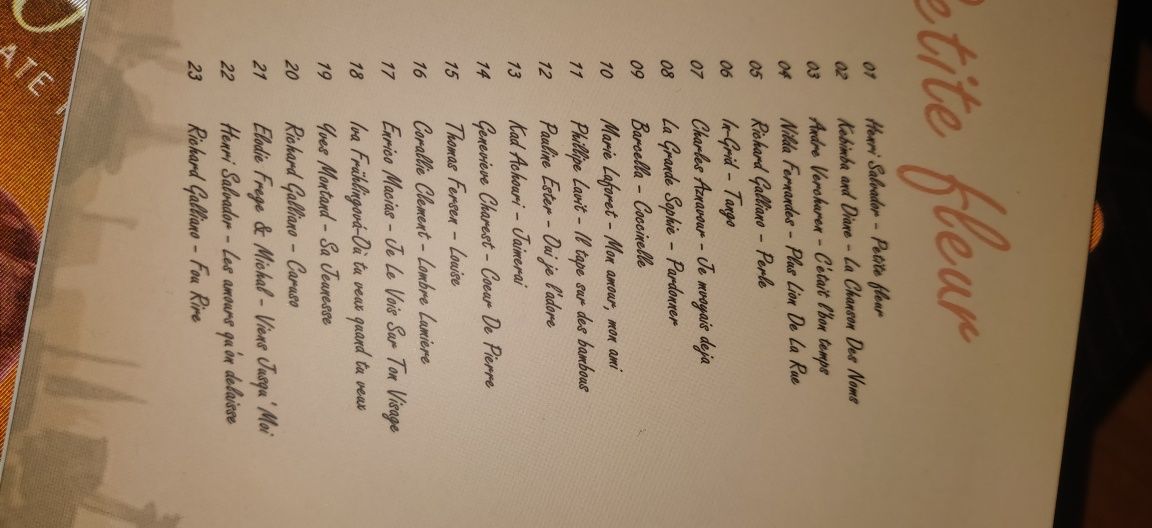 Petite fleur
01 Henri Salvador - Petite fleur
02 Kabinba and Diane - La Chanson Des Noms
03 Andre Verchuren - C'était l'bon temps
04 Nilda Fernandes - Plus Lion De La Rue
05 Richard Galliano - Perle
06 In-Grid - Tango
07 Charles Aznavour - Je mvoyais deja
08 La Grande Sophie - Pardonner
09 Barcella - Coccinelle
10 Marie Laforet - Mon amour, mon ami
11 Phillipe Lavil - Il tape sur des bambous
12 Pauline Ester - Oui je l'adore
13 Kad Achouri - Jaimerai
14 Genevieve Charest - Coeur De Pierre
15 Thomas Fersen - Louise
16 Corallie Clement - Lombre Lumiere
17 Enrico Macias - Je Le Vois Sur Ton Visage
18 Iva Frühlingová-Où tu veux quand tu veux
19 Yves Montand - Sa Jeunesse
20 Richard Galliano - Caruso
21 Elodie Frege & Michal - Viens Jusqu' Moi
22 Henri Salvador - Les amours qu'on delaisse
23 Richard Galliano - Fou Rire